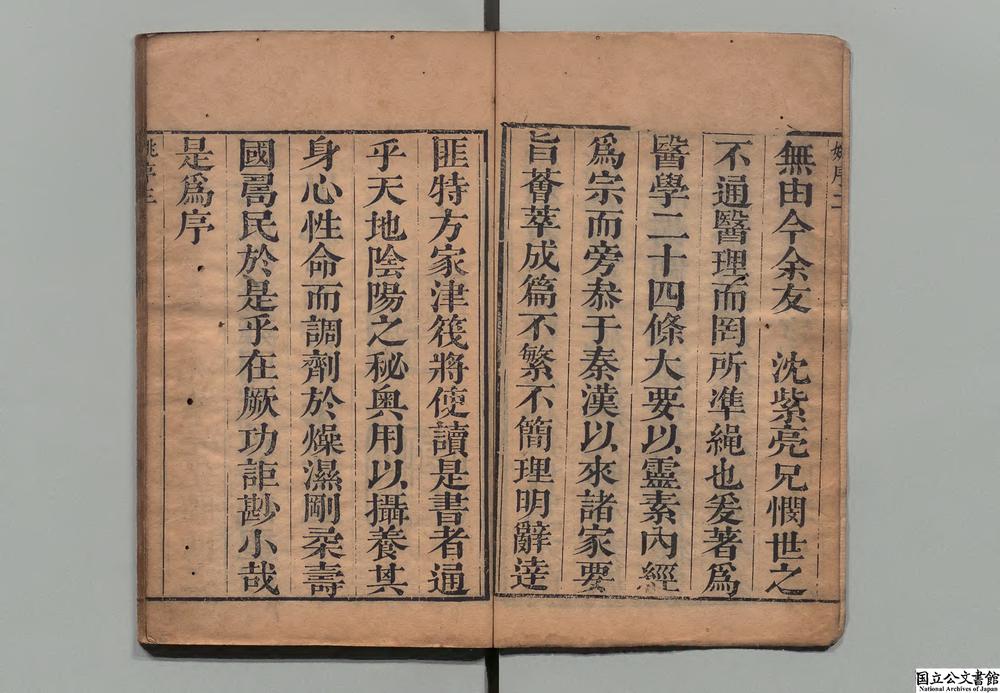 無由今余友　沈紫亮兄憫世之
不通醫理而罔所準繩也爰著爲
醫學二十四條大要以靈素內經
爲宗而旁叅于秦漢以來諸家要
旨薈萃成篇不繁不簡理明辭達
匪特方家津筏將使讀是書者通
乎天地陰陽之秘奥用以攝養其
身心性命而調劑於燥濕剛柔壽
國壽民於是乎在厥功詎尠小哉
是爲序
姚序三
国立公文書館
National Archives of Japan